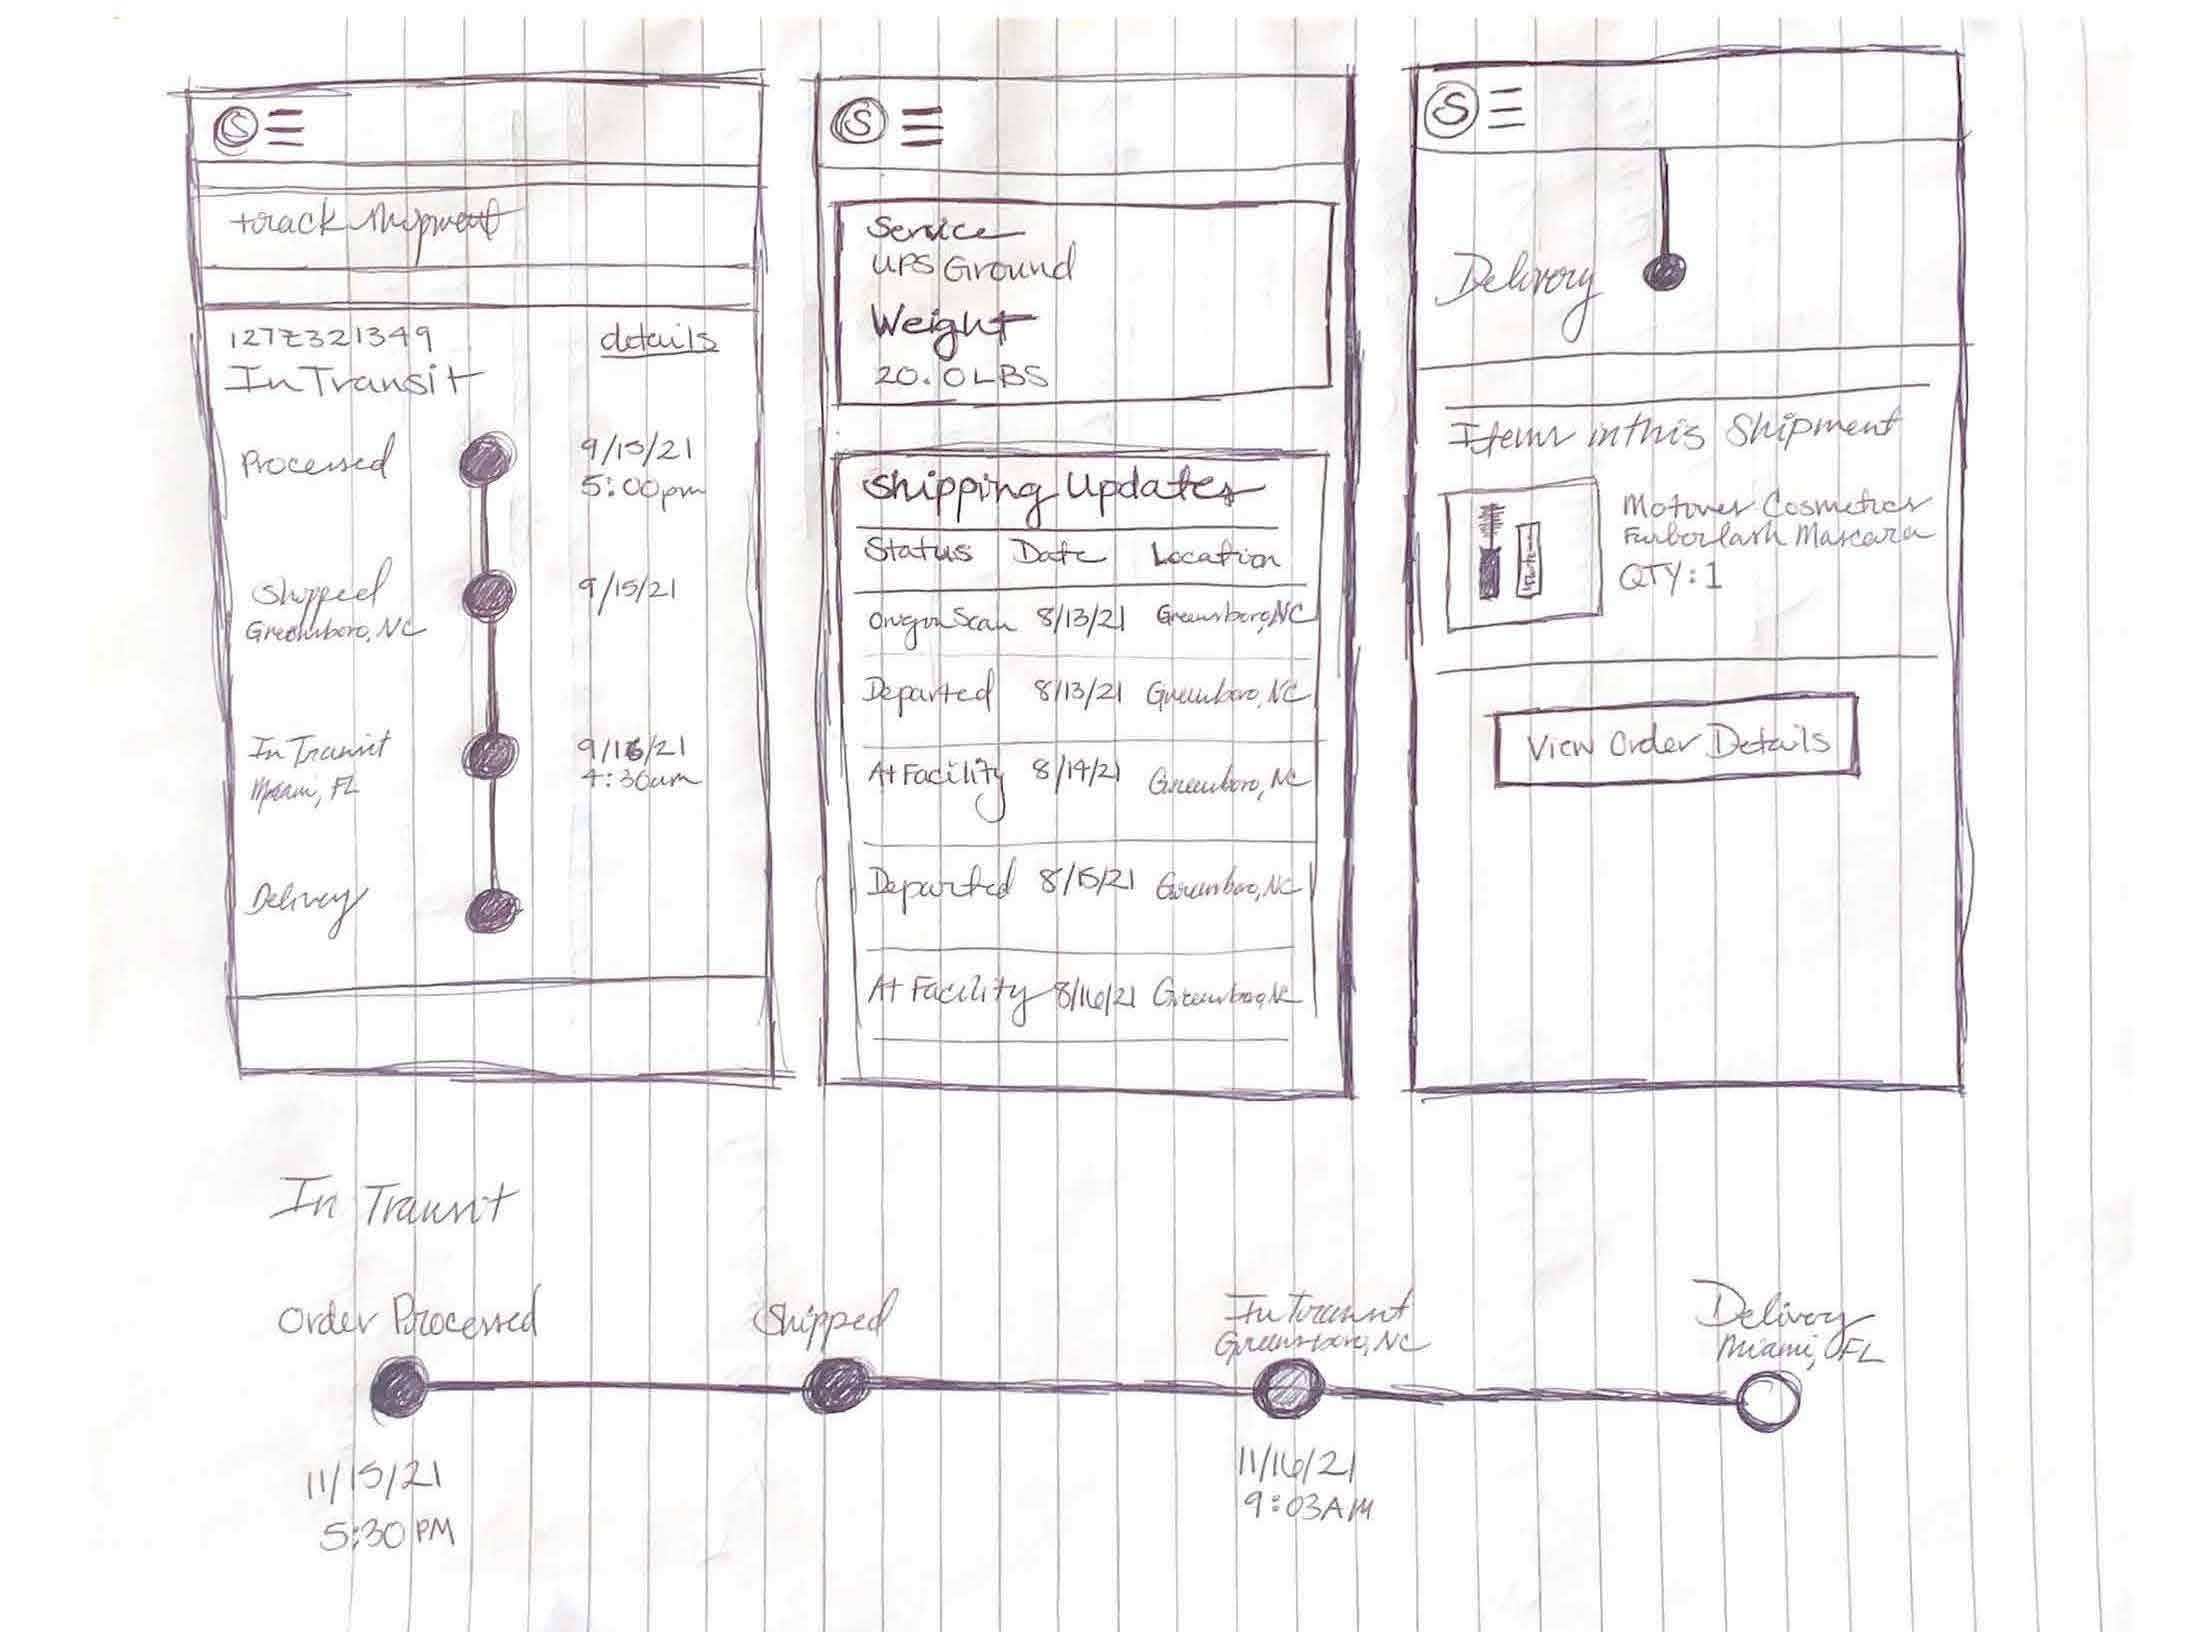 S
track shipment
127Z321349 details
In Transit
Processed 9/15/21
5:00pm
Shipped 9/15/21
Greensboro, NC
In Transit 9/16/21
Miami, FL 4:30am
Delivery
S
Service
UPS Ground
Weight
20.0LBS
Shipping Updates
Status Date Location
Origin Scan 8/13/21 Greensboro, NC
Departed 8/13/21 Greensboro, NC
At Facility 8/14/21 Greensboro, NC
Departed 8/15/21 Greensboro, NC
At Facility 8/16/21 Greensboro, NC
S
Delivery
Items in this Shipment
Cosmetics
Mascara
QTY: 1
View Order Details
In Transit
Order Processed
11/15/21
5:30 PM
Shipped
In transit
Greensboro, NC
11/16/21
9:03AM
Delivery
Miami, FL